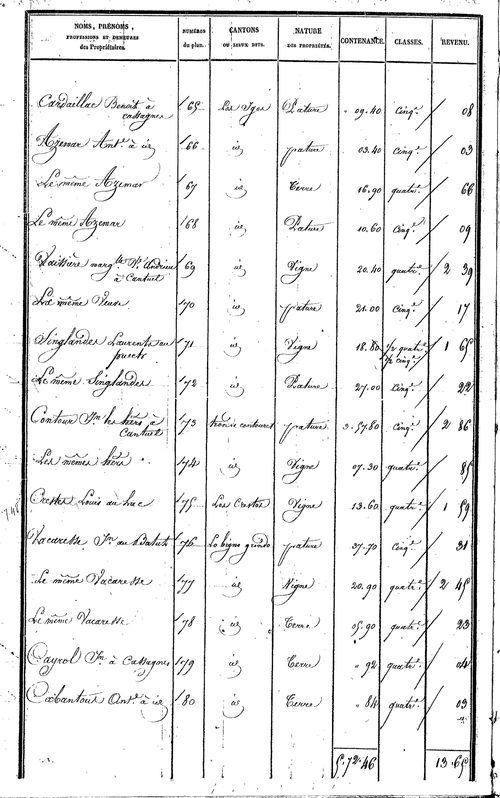 NOMS, PRÉNOMS, PROFESSIONS ET DEMEURES des Propriétaires. NUMÉROS du plan. CANTONS OU LIEUX DITS. NATURE DES PROPRIÉTÉS. CONTENANCE. CLASSES. REVENU.
Cardaillac Benoit à cassagnes 165 Los Igos Pature " 09.40 cinq.e 08
Azemar Ant.e à id 166 id pature 03.40 cinq.e 03
Le même Azemar 167 id Terre 16.90 quatr.e 66
Le même Azemar 168 id Pature 10.60 Cinq.e 09
Vaissière marg.te V.e Andrieu à Cantuel 169 id Vigne 20.40 quatr.e 2 39
La même Veuve 170 id pature 21.00 Cinq.e 17
Singlandes Laurent au puech 171 id Vigne 18.60 1/2 quatr.e 1/2 cinq.e 1 65
Le même Singlandes 172 id Pature 27.00 Cinq.e 22
Contour J.n les hérs à Cantuel 173 contouret pature 3.57.80 Cinq.e 2 86
Les mêmes hérs 174 id Vigne 07.30 quatr.e 85
Crestes Louis au 175 Los Crestos Vigne 13.60 quatr.e 1 59
Vacaresse J.n au Batut 176 Lo bigno grando pature 37.70 Cinq.e 31
Le même Vacaresse 177 id Vigne 20.90 quatr.e 2 45
Le même Vacaresse 178 id Terre 05.90 quatr.e 23
Cayrol J.n à Cassagnes 179 id Terre " 92 quatr.e 04
Cabantous Ant.e à id 180 id Terre " 84 quatr.e 03
5.72.46 13.65